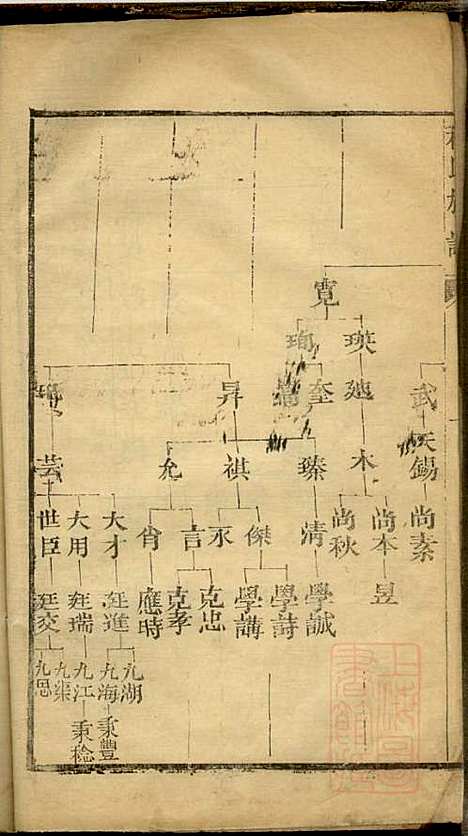 寬
瑛
珣
廸
奎
武
昇
天錫
木
瑧
祺
允
芸
尚素
尚本
尚秋
清
傑
永
言
肖
大才
大用
世臣
昱
學誠
學詩
學講
克忠
克孝
應時
廷進
廷瑞
廷交
九湖
九海
九江
九渠
九思
秉豐
秉稔